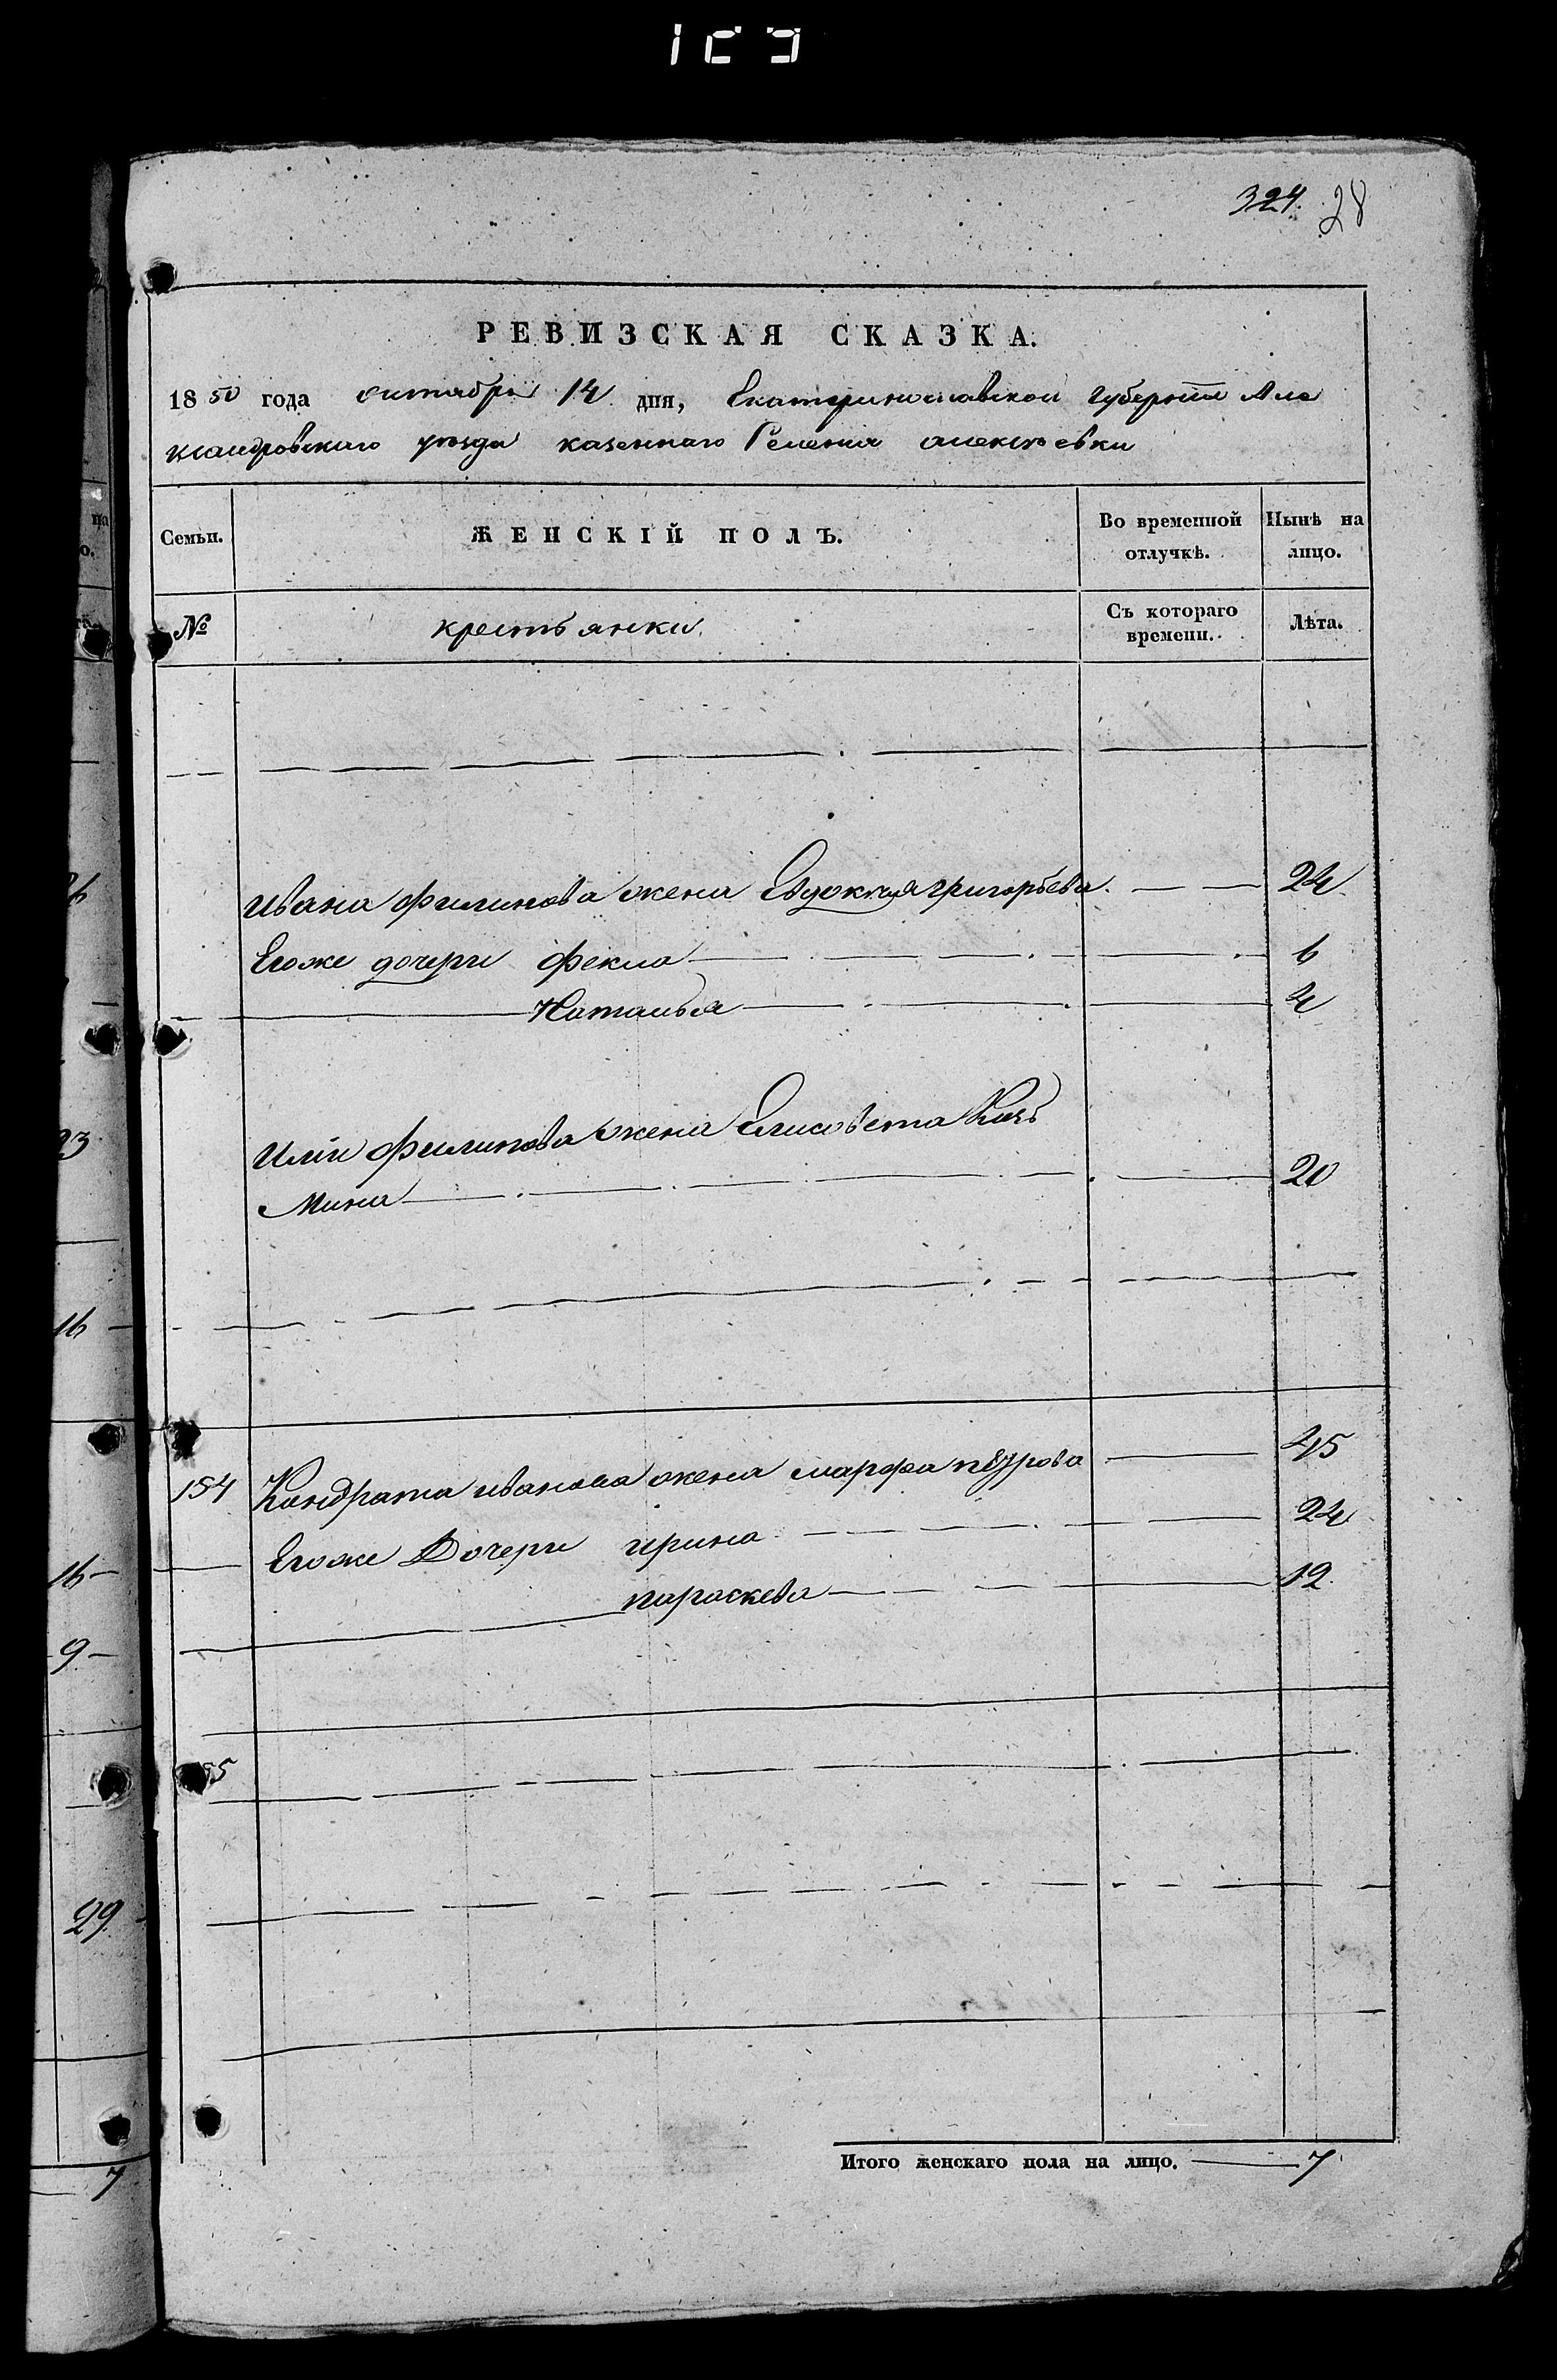 324. 28
РЕВИЗСКАЯ СКАЗКА.
1850 года октября 14 дня, Екатеринославской губернии Але
ксандровскаго уезда казеннаго Селения алексеевки
Семьи.
ЖЕНСКІЙ ПОЛЪ.
Во временной отлучкѣ.
Нынѣ на лицо.
№
крестьянки.
Съ котораго времени.
Лѣта.
ивана филипова жена Евдокия григорьева 24
Егоже дочери фекла 6
Наталья 4
Илии филипова жена Елисавета Кузь
Мина 20
154 Кондрата иванова жена марфа петрова 45
Егоже Дочери ирина 24
параскева 12
Итого женскаго пола на лицо. 7
на
о.
23
16
16
9
29
7